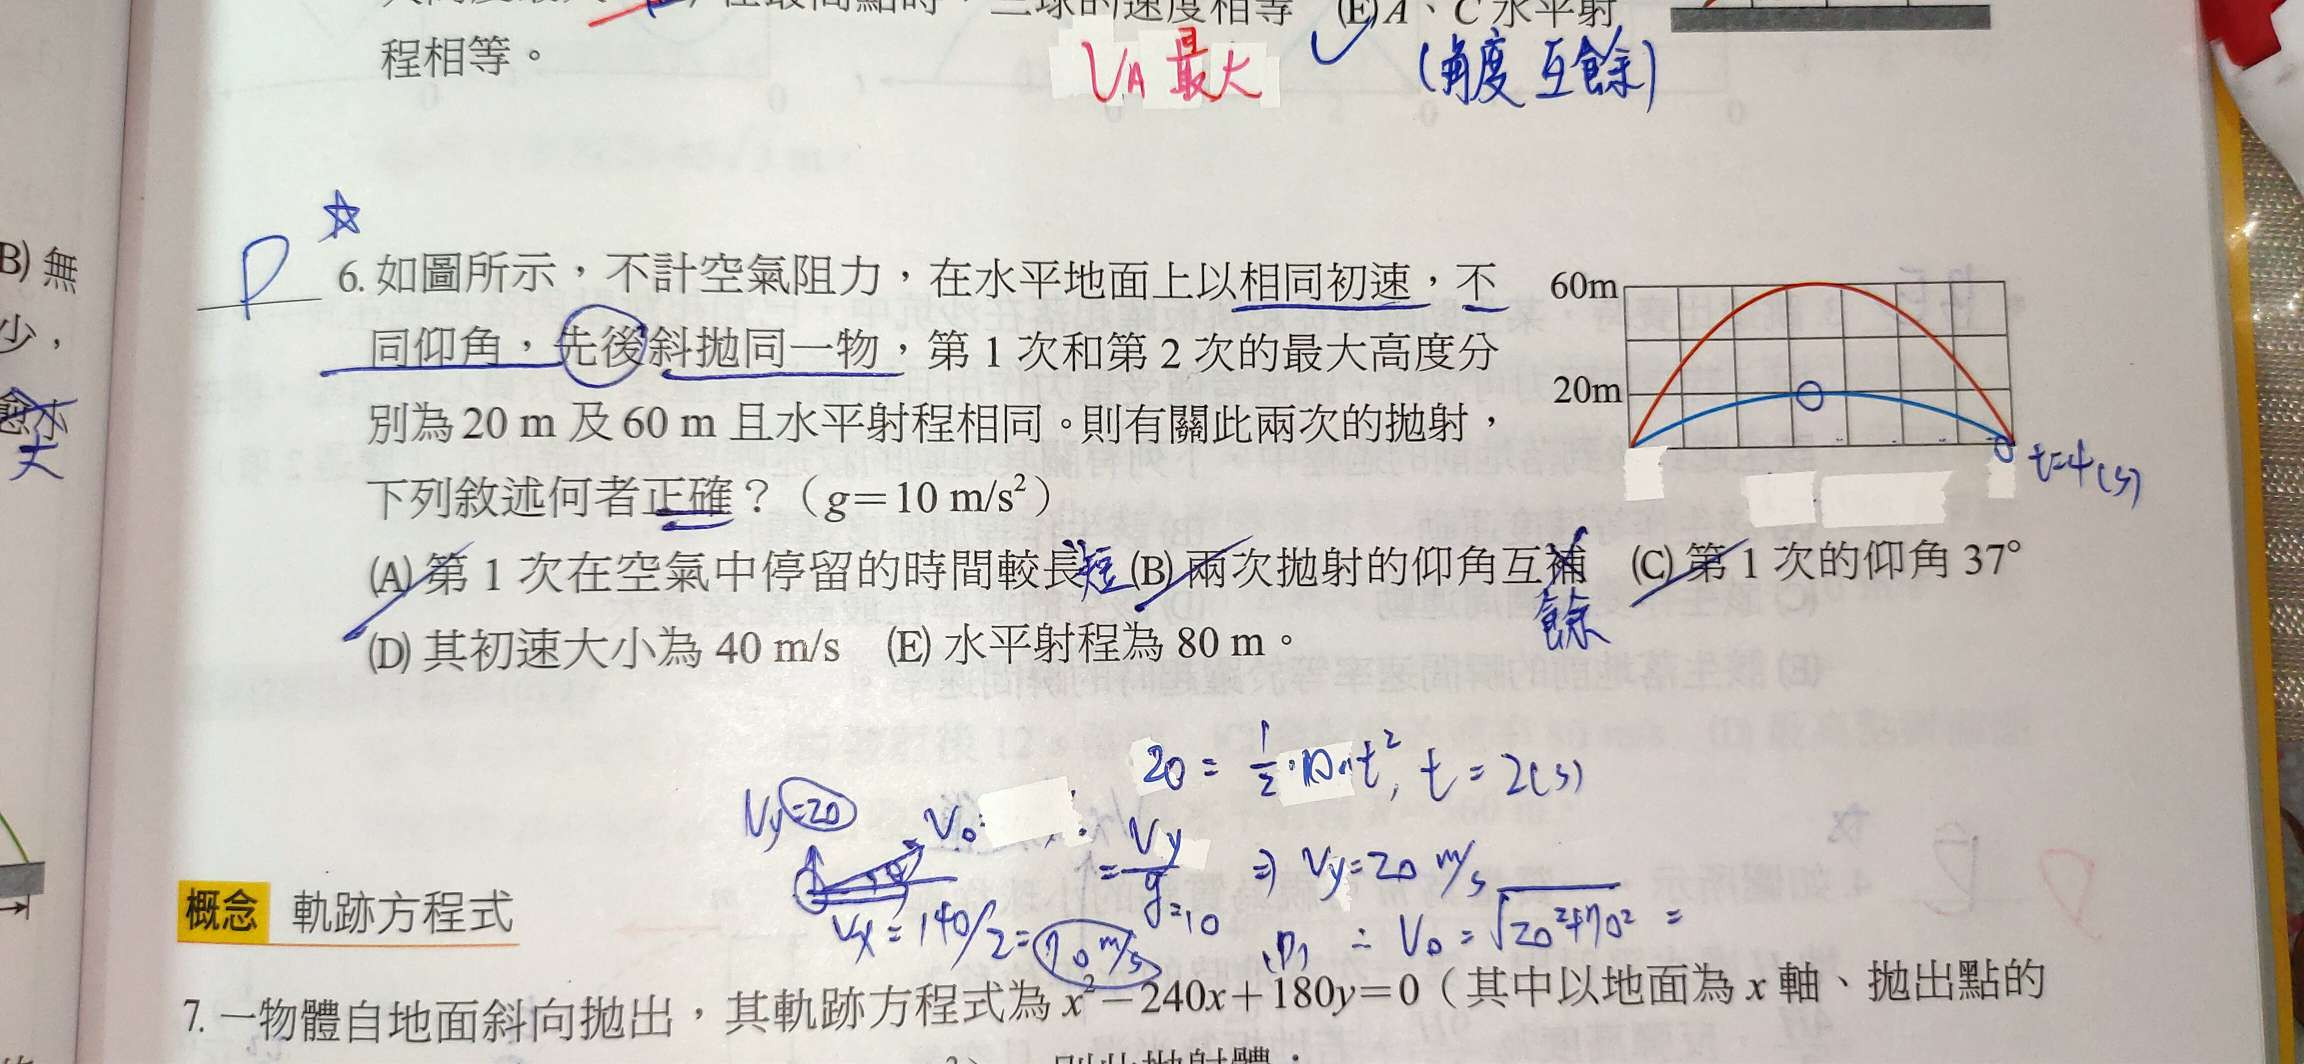 程相等。
(E) A、C 水平射
VA 最大
(角度互餘)
B) 無
少，
大
D ☆
6. 如圖所示，不計空氣阻力，在水平地面上以相同初速，不
同仰角，先後斜拋同一物，第 1 次和第 2 次的最大高度分
別為 20 m 及 60 m 且水平射程相同。則有關此兩次的拋射，
下列敘述何者正確？（g＝10 m/s²）
(A) 第 1 次在空氣中停留的時間較長 短 (B) 兩次拋射的仰角互補 (C) 第 1 次的仰角 37°
餘
(D) 其初速大小為 40 m/s (E) 水平射程為 80 m。
60m
20m
t=4(s)
20 = 1/2·10·t², t = 2(s)
Vy=20
V0
= Vy/g=10 ⇒ Vy=20 m/s
Vx = 140/2 = 70 m/s
∴ V0 = √20²+70² =
概念 軌跡方程式
7. 一物體自地面斜向拋出，其軌跡方程式為 x²－240x＋180y＝0（其中以地面為 x 軸、拋出點的